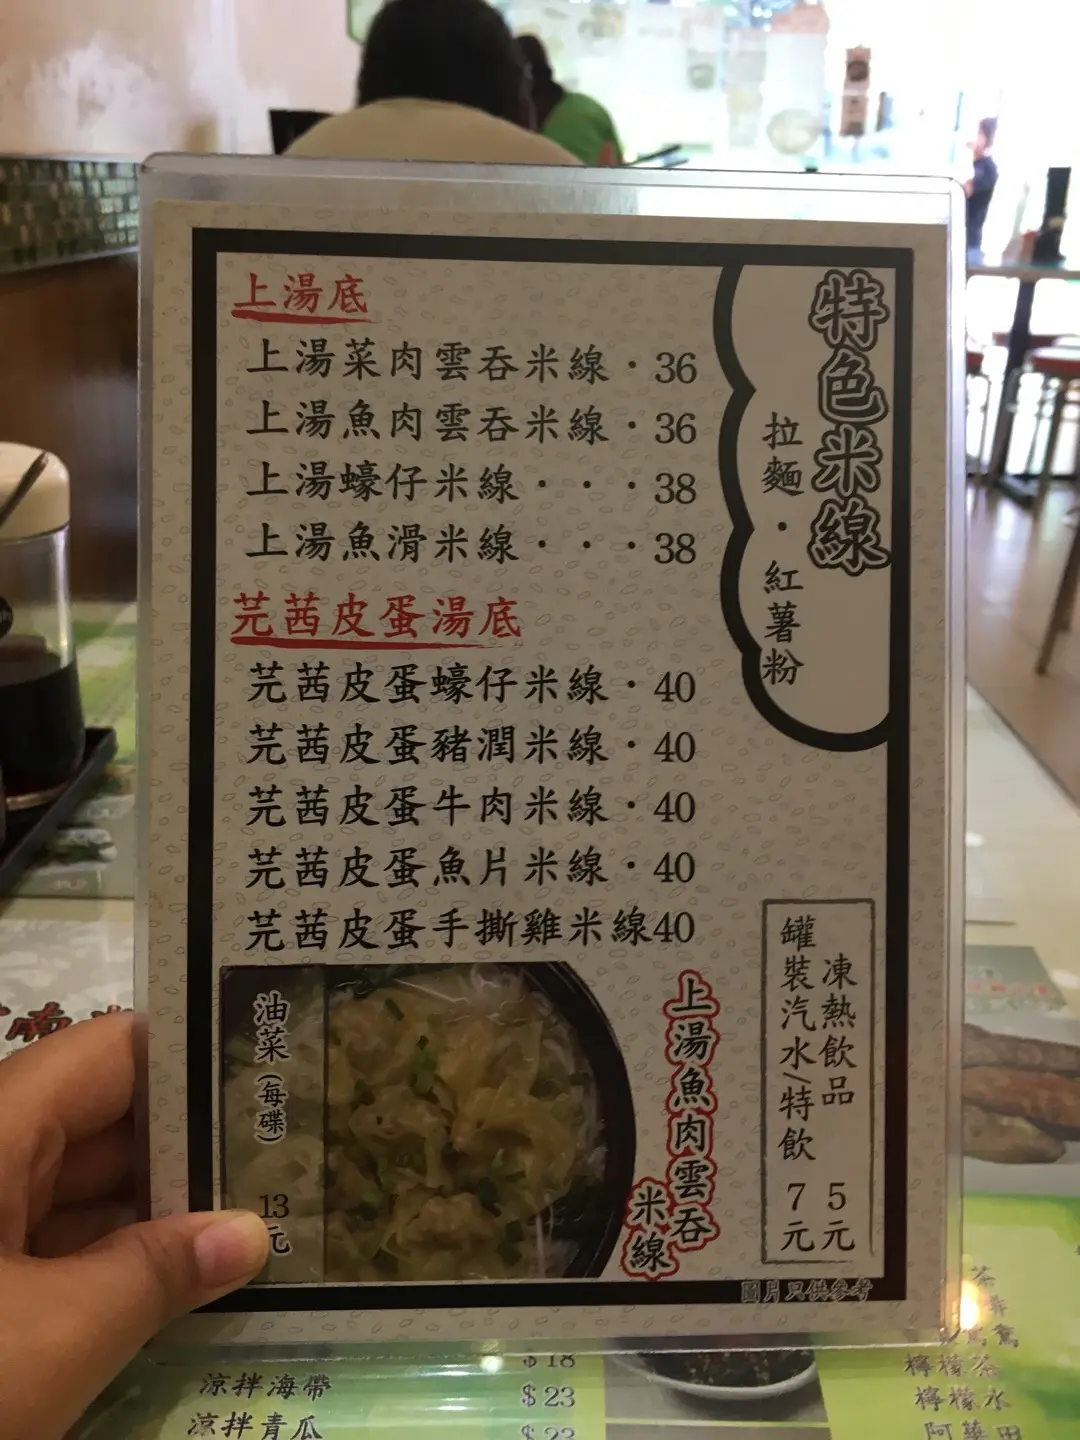 特色米線
拉麵·紅薯粉
上湯底
上湯菜肉雲吞米線·36
上湯魚肉雲吞米線·36
上湯蠔仔米線···38
上湯魚滑米線···38
芫茜皮蛋湯底
芫茜皮蛋蠔仔米線·40
芫茜皮蛋豬潤米線·40
芫茜皮蛋牛肉米線·40
芫茜皮蛋魚片米線·40
芫茜皮蛋手撕雞米線40
油菜(每碟) 13元
上湯魚肉雲吞
米線
凍熱飲品 5元
罐裝汽水/特飲 7元
圖片只供參考
$18
涼拌海帶 $23
涼拌青瓜
茶
檸檬茶
檸檬水